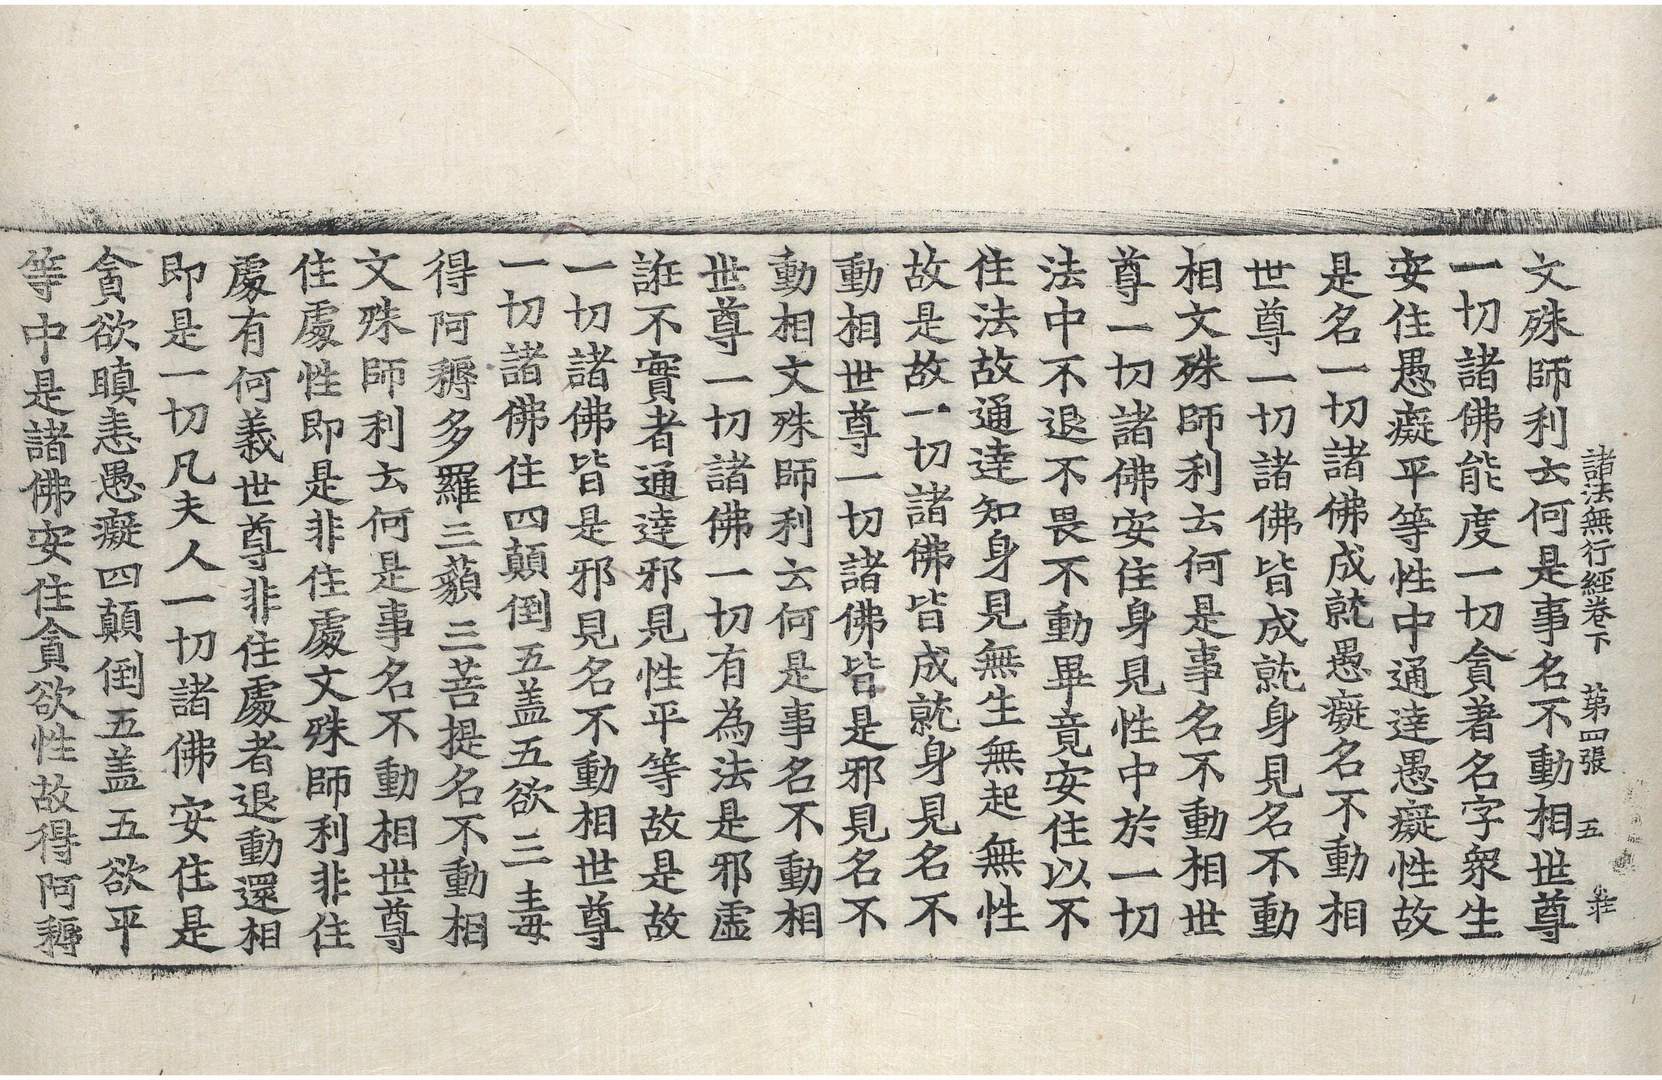 諸法無行經卷下 第四張 五 
文殊師利云何是事名不動相世尊
一切諸佛能度一切貪著名字衆生
安住愚癡平等性中通達愚癡性故
是名一切諸佛成就愚癡名不動相
世尊一切諸佛皆成就身見名不動
相文殊師利云何是事名不動相世
尊一切諸佛安住身見性中於一切
法中不退不畏不動畢竟安住以不
住法故通達知身見無生無起無性
故是故一切諸佛皆成就身見名不
動相世尊一切諸佛皆是邪見名不
動相文殊師利云何是事名不動相
世尊一切諸佛一切有為法是邪虛
誑不實者通達邪見性平等故是故
一切諸佛皆是邪見名不動相世尊
一切諸佛住四顛倒五盖五欲三毒
得阿耨多羅三藐三菩提名不動相
文殊師利云何是事名不動相世尊
住處性即是非住處文殊師利非住
處有何義世尊非住處者退動還相
即是一切凡夫人一切諸佛安住是
貪欲瞋恚愚癡四顛倒五盖五欲平
等中是諸佛安住貪欲性故得阿耨